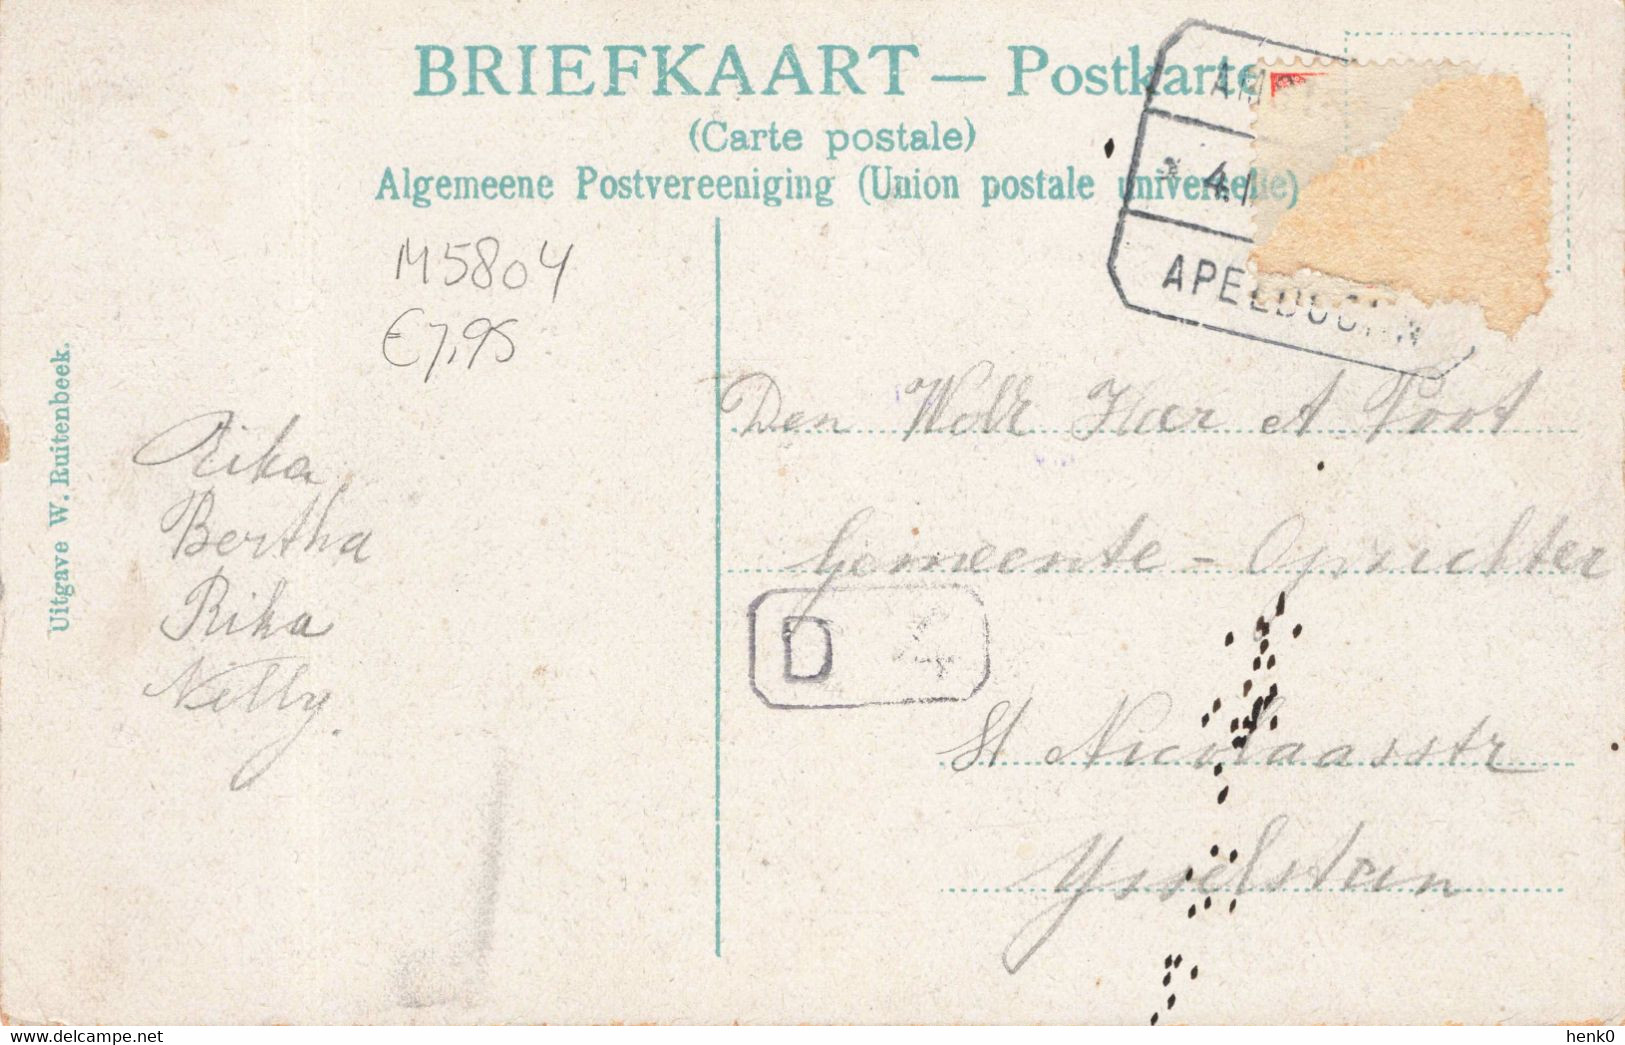 BRIEFKAART — Postkarte
(Carte postale)
Algemeene Postvereeniging (Union postale universelle)
4.
APELDOORN
M5804
€7,95
Uitgave W. Ruitenbeek.
Rika
Bertha
Rika
Nelly.
Den Heer A
Gemeente - Opzichter
D 4
St Nicolaasstr
Ysselstein
henk0